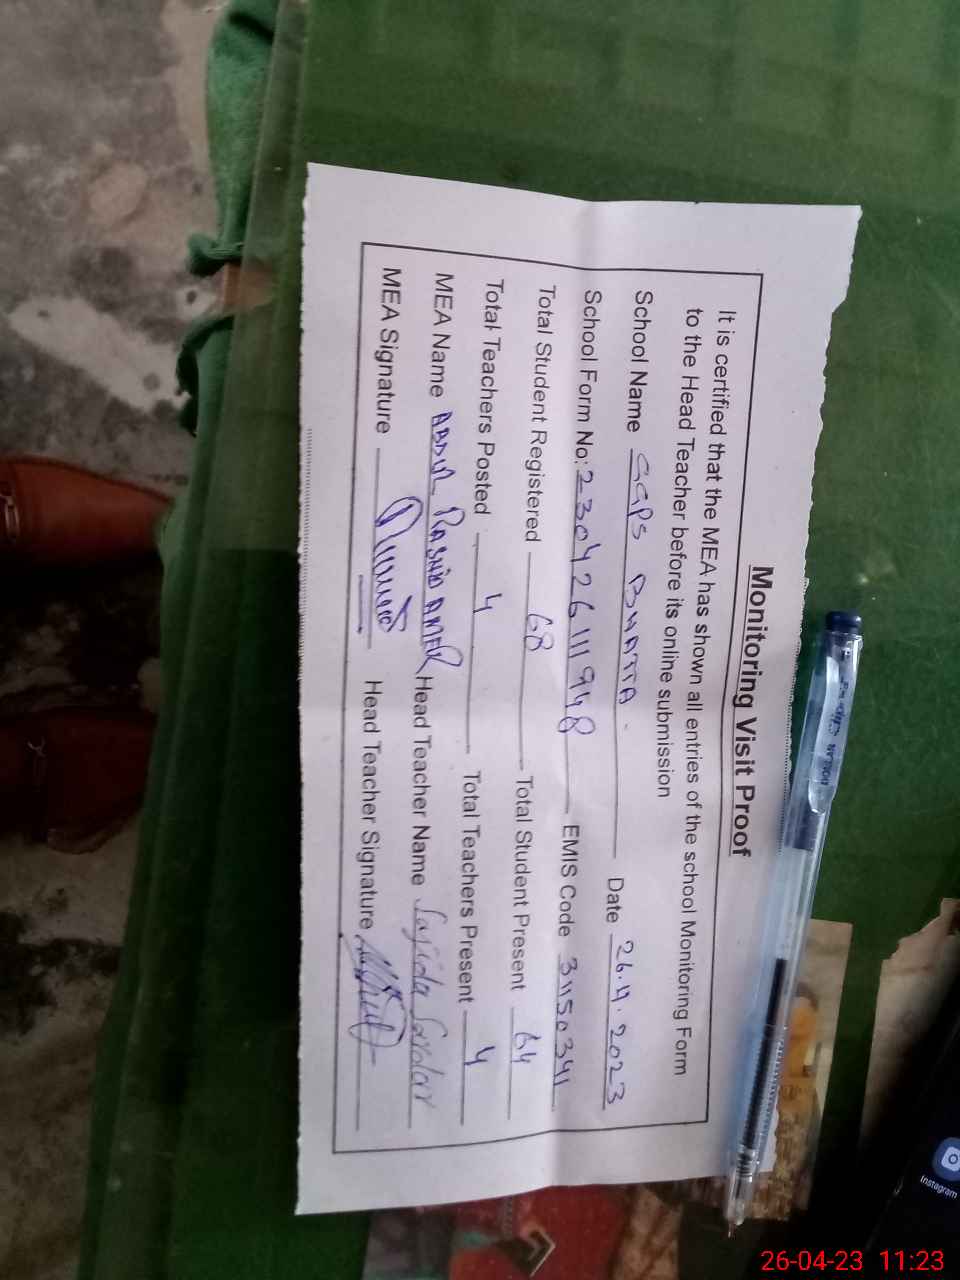 Monitoring Visit Proof
It is certified that the MEA has shown all entries of the school Monitoring Form
to the Head Teacher before its online submission
School Name GGPS BHATTA. Date 26.4.2023
School Form No: 230426111948 EMIS Code 31150341
Total Student Registered 68 Total Student Present 64
Total Teachers Posted 4 Total Teachers Present 4
MEA Name ABDUL RASHID AMER Head Teacher Name Sajida Sardar
MEA Signature Head Teacher Signature
Instagram
26-04-23 11:23